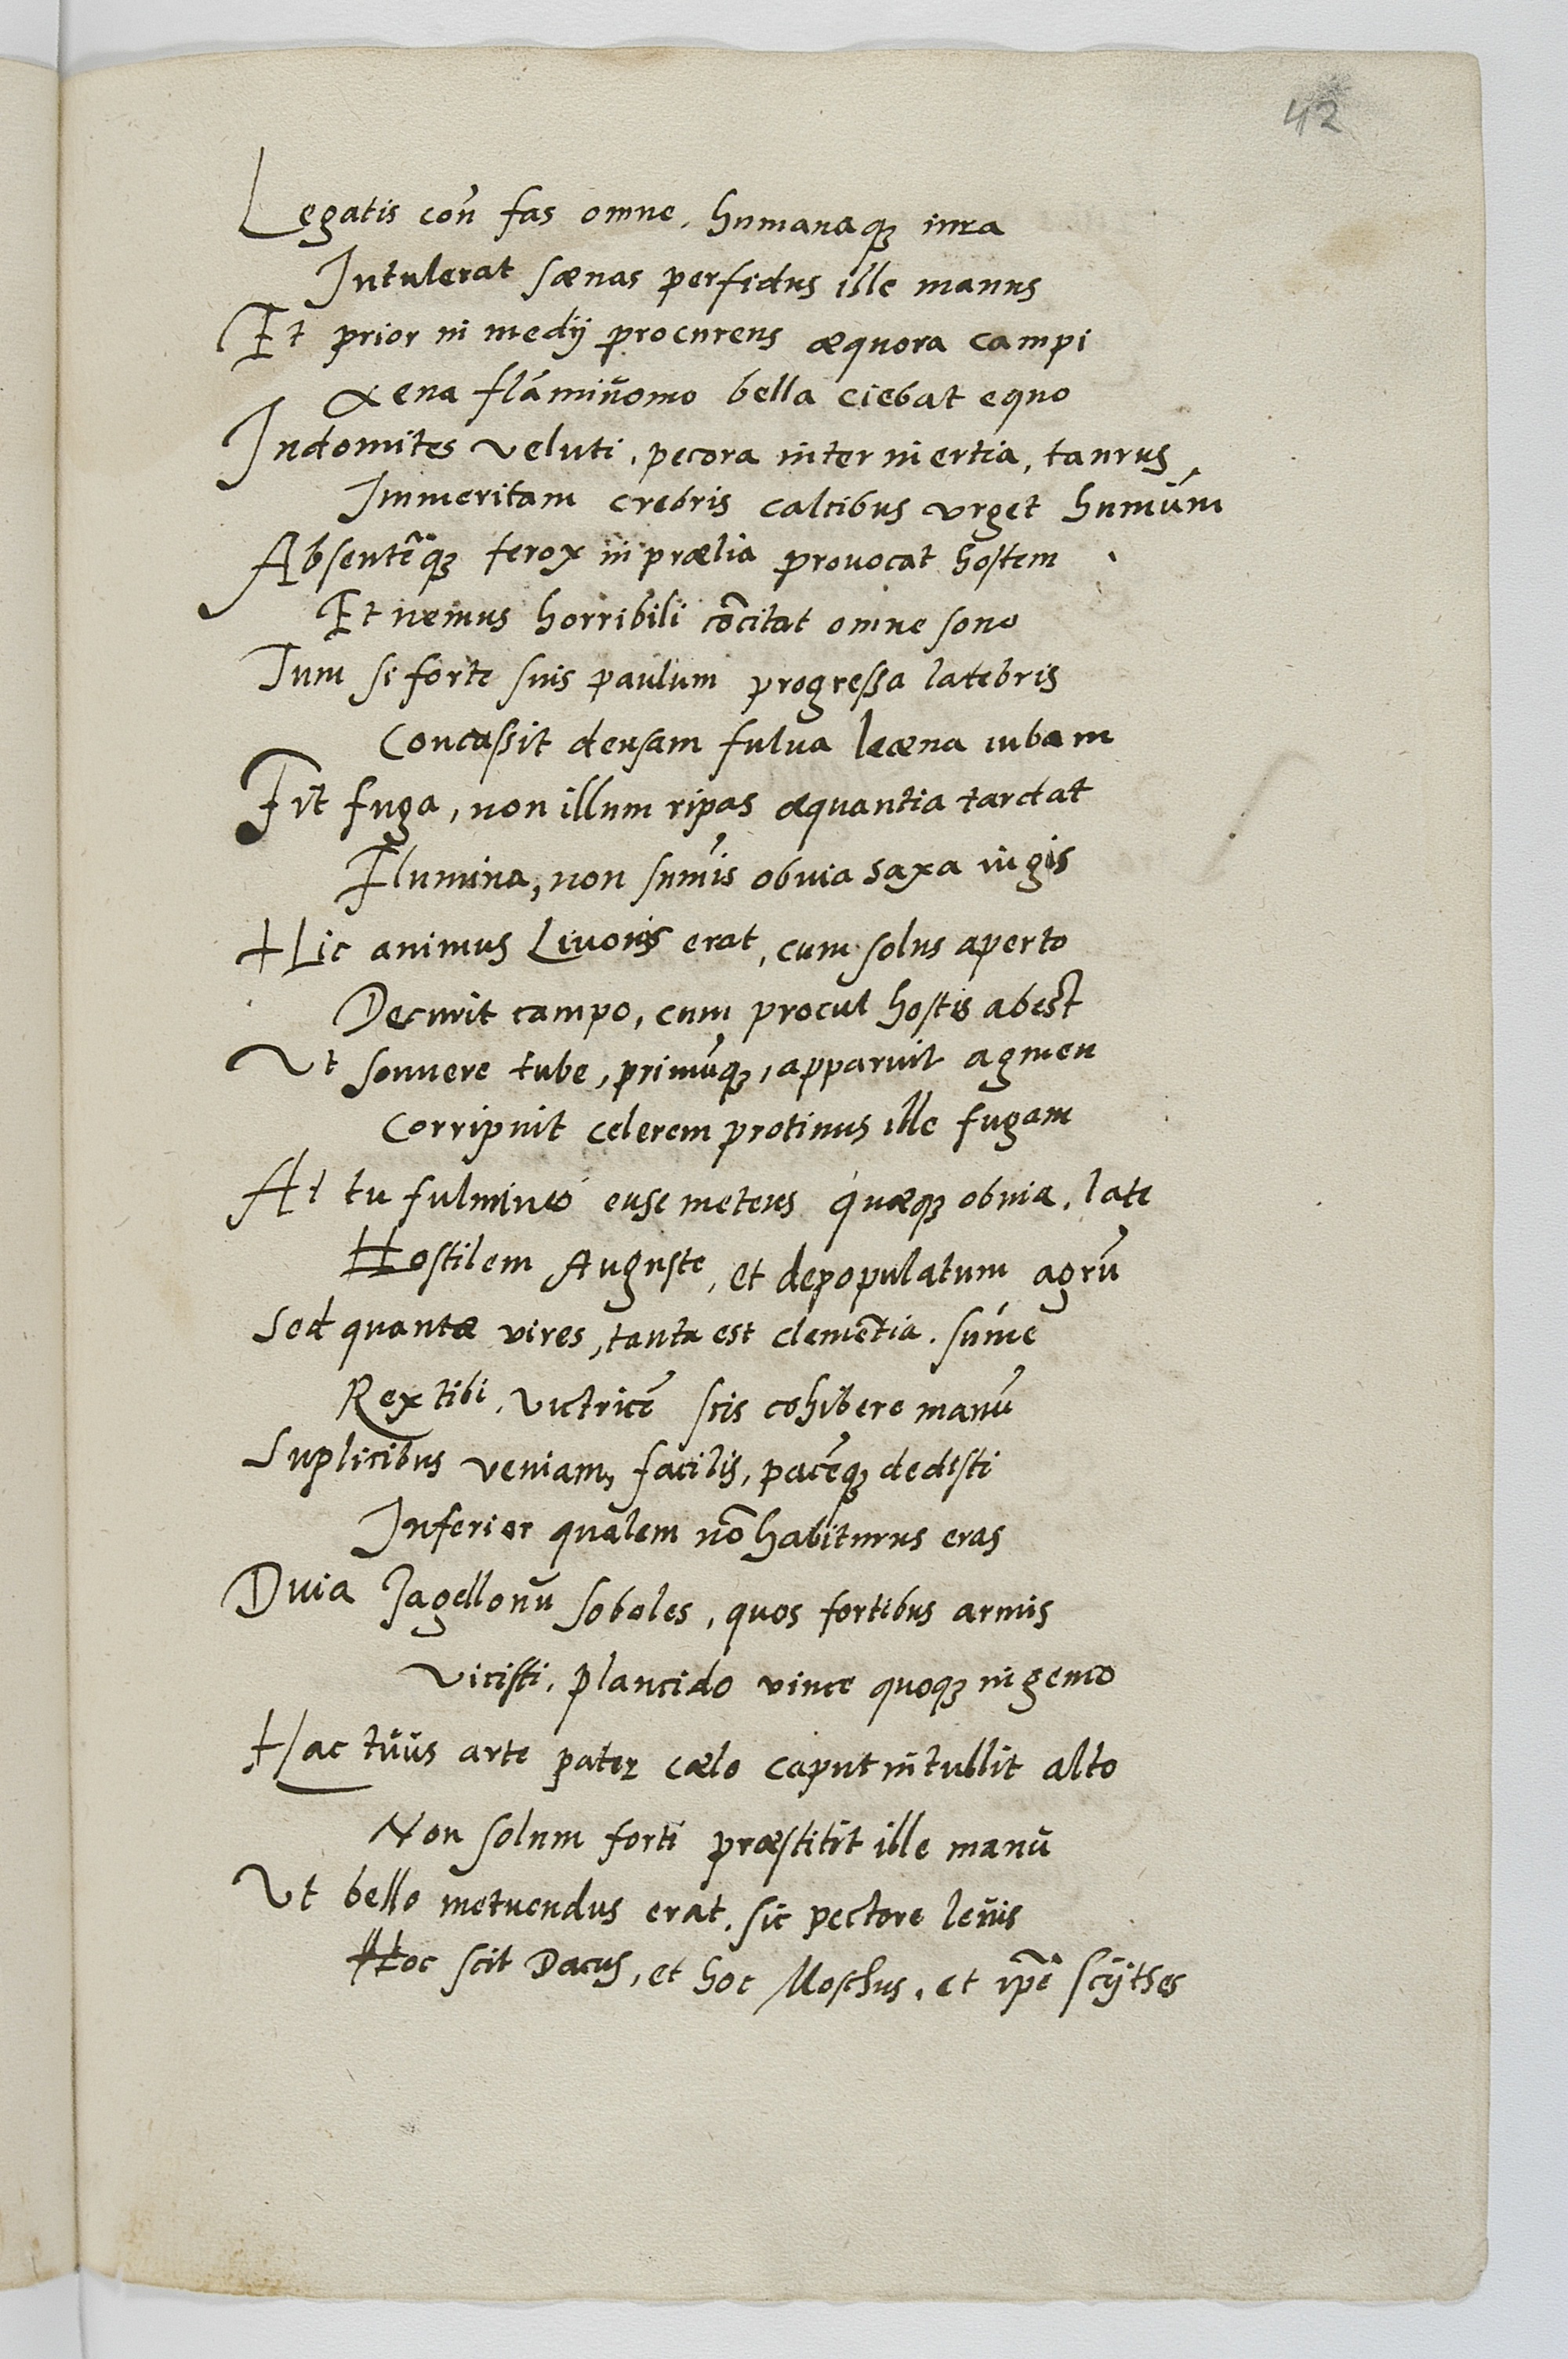 42
Legatis coñ fas omne, humanaq₃ iura
Intulerat sænas perfidus ille manus
Et prior in medij procurens æquora campi
Xena flámiṽomo bella ciebat equo
Indomites veluti, pecora inter inertia, taurus
Immeritam crebris calcibus vrget humúm
Absentēq₃ ferox in prælia prouocat hostem
Et nemus horribili cōcitat omne sono
Tum si forte suis paulum progreßa latebris
Concaßit densam fulua leæna iubam
Fit fuga, non illum ripas æquantia tardat
Flumina, non sumis obuia saxa iugis
Hic animus Livonis erat, cum solus aperto
Decurit campo, cum procul hostis abest
Vt sonuere tube, primūq₃, apparuit agmen
Corripuit celerem protinus ille fugam
At tu fulmineo ense metens quæq₃ obuia, late
Hostilem Auguste, et depopulatum agrū
Sed quantæ vires, tanta est clemētia. sūme
Rex tibi, victricē scis cohibere manū
Suplicibus veniam, facilis, pacēq₃ dedisti
Inferior qualem nō habiturus eras
Duia Jagellonū soboles, quos fortibus armis
Vicisti, plancido vince quoq₃ ingenio
Hac tuus arte pater cælo caput intullit alto
Non solum forti præstitit ille manū
Vt bello metuendus erat, sic pectore levis
Hoc scit Dacus, et hoc Moschus, et ipē scijthes